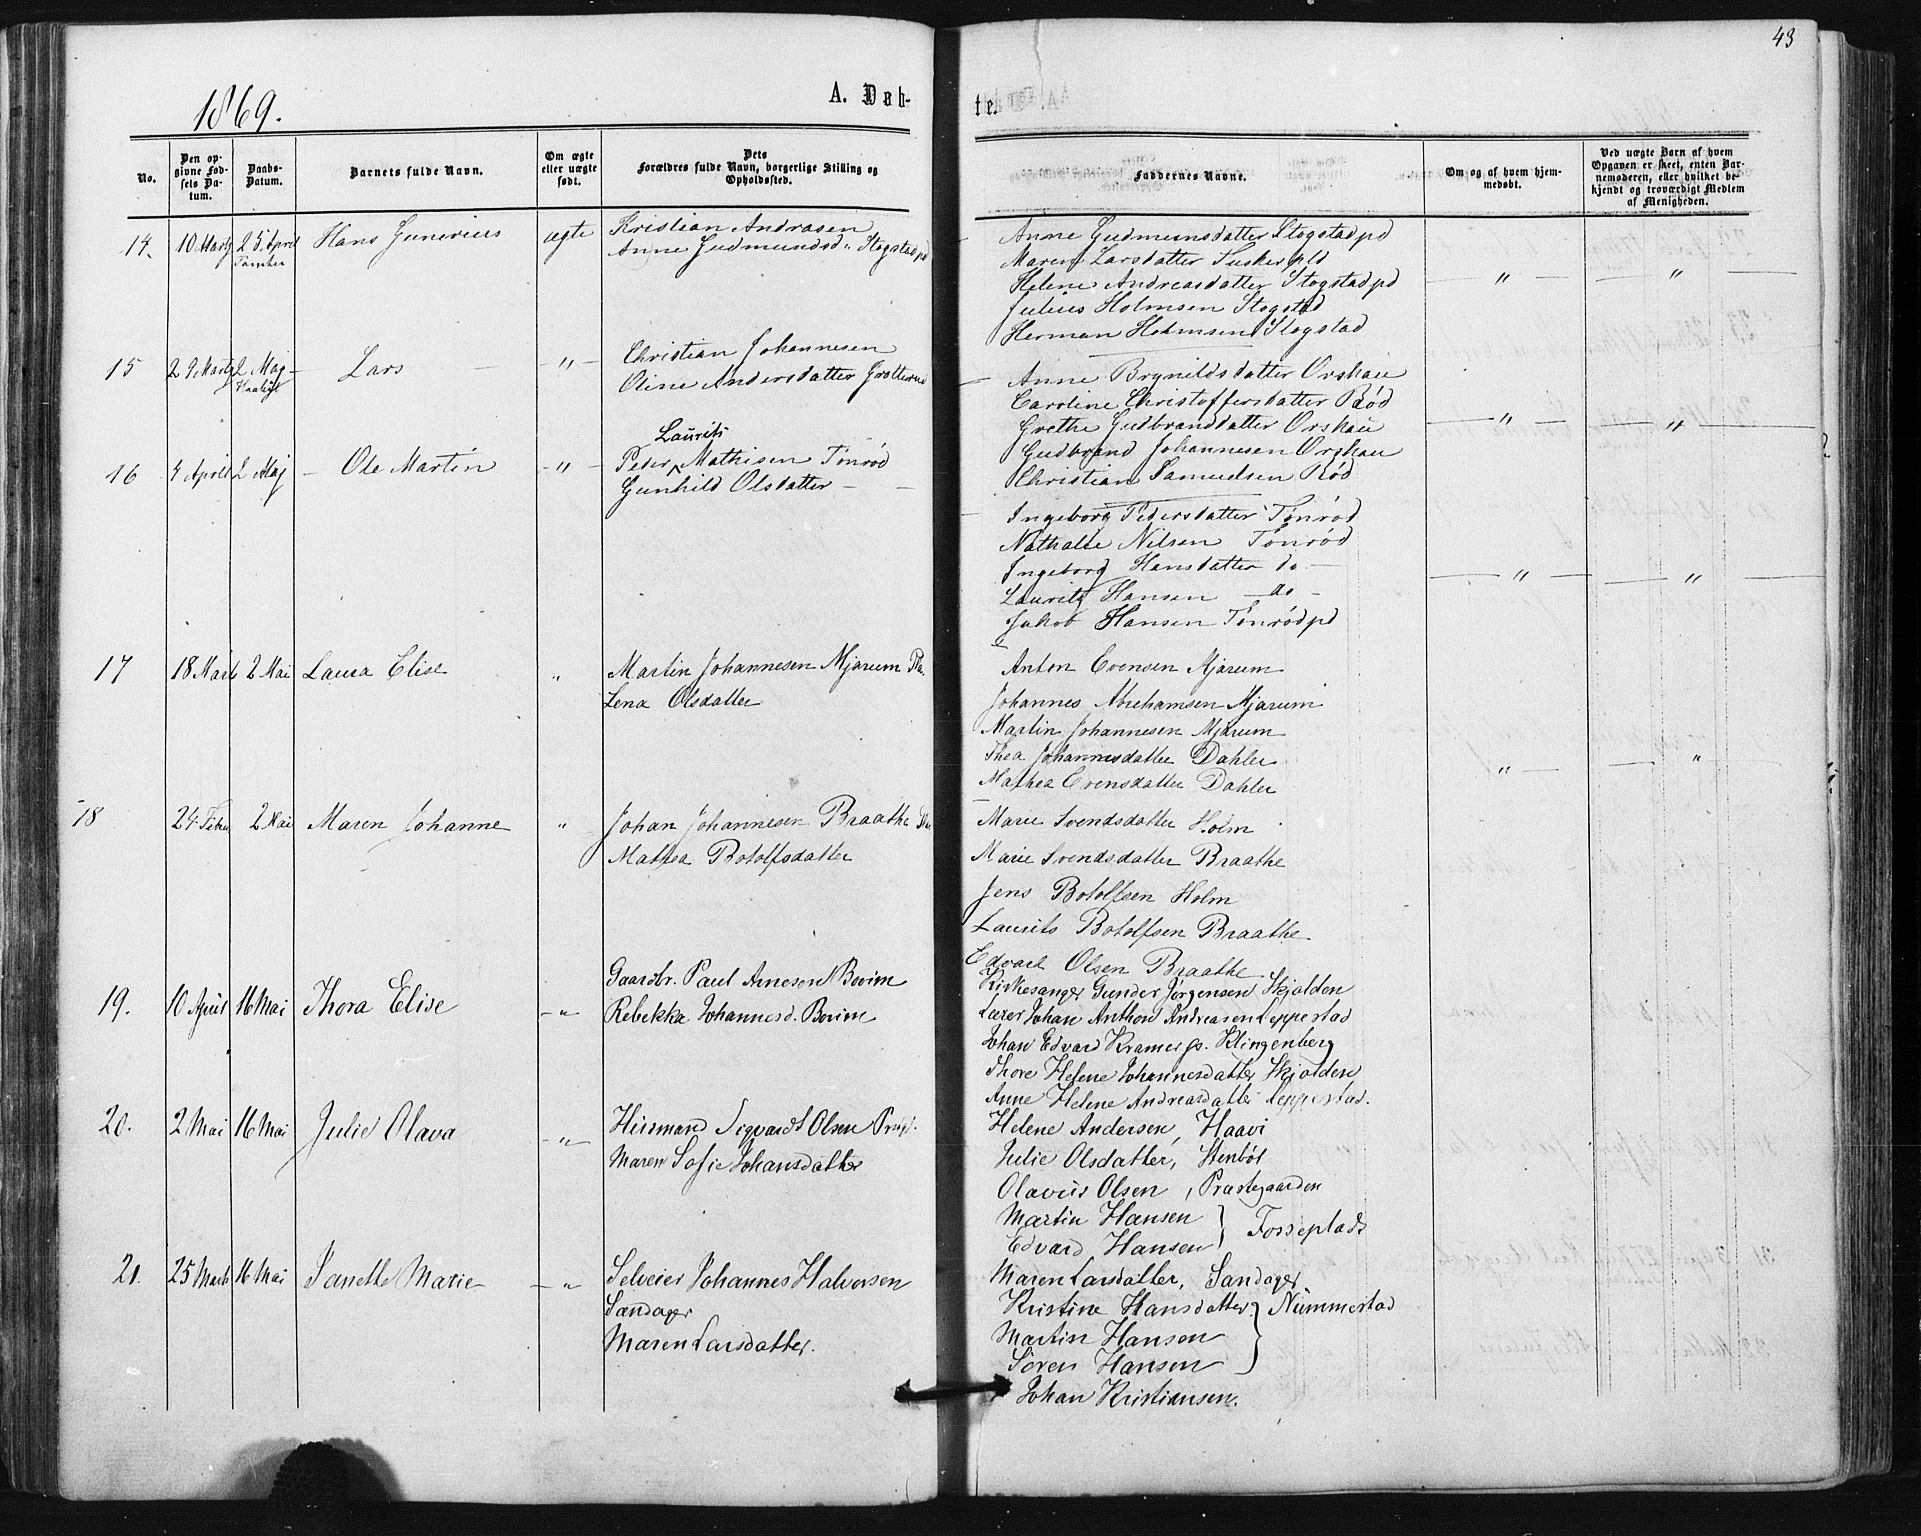 43
1869.
A. Døb-
te.
No.
Den op-
givne Fød-
sels Da-
tum.
Daabs-
Datum.
Barnets fulde Navn.
Om ægte
eller uægte
født.
Dets
Forældres fulde Navn, borgerlige Stilling og
Opholdssted.
Faddernes Navne.
Om og af hvem hjem-
medøbt.
Ved uægte Barn af hvem
Opgaven er skeet, enten Bar-
nemoderen, eller hvilket be-
kjendt og troværdigt Medlem
af Menigheden.
14. 10 Marts 25 April Hans Gunerius ægte Kristian Andrasen
Anne Gudmundsd. Stogstad pd
Anne Gudmunsdatter Stogstad pd
Maren Larsdatter
Helene Andreasdatter Stogstad pd
Julius Holmsen Stogstad
Herman Holmsen Stogstad
" "
15 29 Marts 2 Maj Lars " Christian Johannesen
Oline Andersdatter Grotterud
Anne Brynildsdatter Orskau
Caroline Christoffersdatter Rød
Grethe Gudbrandsdatter Orskau
Gudbrand Johannesen Orskau
Christian Samuelsen Rød
" "
16 4 April 2 Maj Ole Martin " Laurits
Peder Mathisen Tønrød
Gunhild Olsdatter —
Ingeborg Pedersdatter Tønrød
Nathalie Nilsen Tønrød
Ingeborg Hansdatter do —
Lauritz Hansen — do —
Jakob Hansen Tønrød pd
" "
17 18 Mart 2 Mai Laura Elise " Martin Johannesen Mjarum
Lena Olsdatter
Anton Evensen Mjarum
Johannes Abrehamsen Mjarum
Martin Johannesen Mjarum
Thea Johannesdatter Dahler
Mathea Evensdatter Dahler
" "
18 24 Febr 2 Mai Maren Johanne " Johan Johannesen Braathe
Mathea Botolfsdatter
Marie Svendsdatter Holm
Marie Svendsdatter Braathe
Jens Botolfsen Holm
Laurits Botolfsen Braathe
Edvart Olsen Braathe
19. 10 April 16 Mai Thora Elise " Gaardbr. Paul Arnesen Bovim
Rebekka Johannesd. Bovim
Kirkesanger Gunder Jørgensen Skjolden
Lærer Johan Anthon Andreasen Leppestad
Johan Edvard Kramer gs. Klingenberg
Thore Helene Johannesdatter Skjolden
Anne Helene Andreasdatter Leppestad.
20. 2 Mai 16 Mai Julie Olava " Herman Sigvardt Olsen
Maren Sofie Johansdatter
Helene Andersen, Haavi
Julie Olsdatter, Stenbøl
Olavus Olsen, Præstegaarden
Martin Hansen
Edvard Hansen } Fosseplads
21. 25 Marts 16 Mai Janette Marie " Selveier Johannes Halvorsen
Sandager
Maren Larsdatter.
Maren Larsdatter, Sandager
Kristine Hansdatter } Nummestad
Martin Hansen
Søren Hansen
Johan Kristiansen.